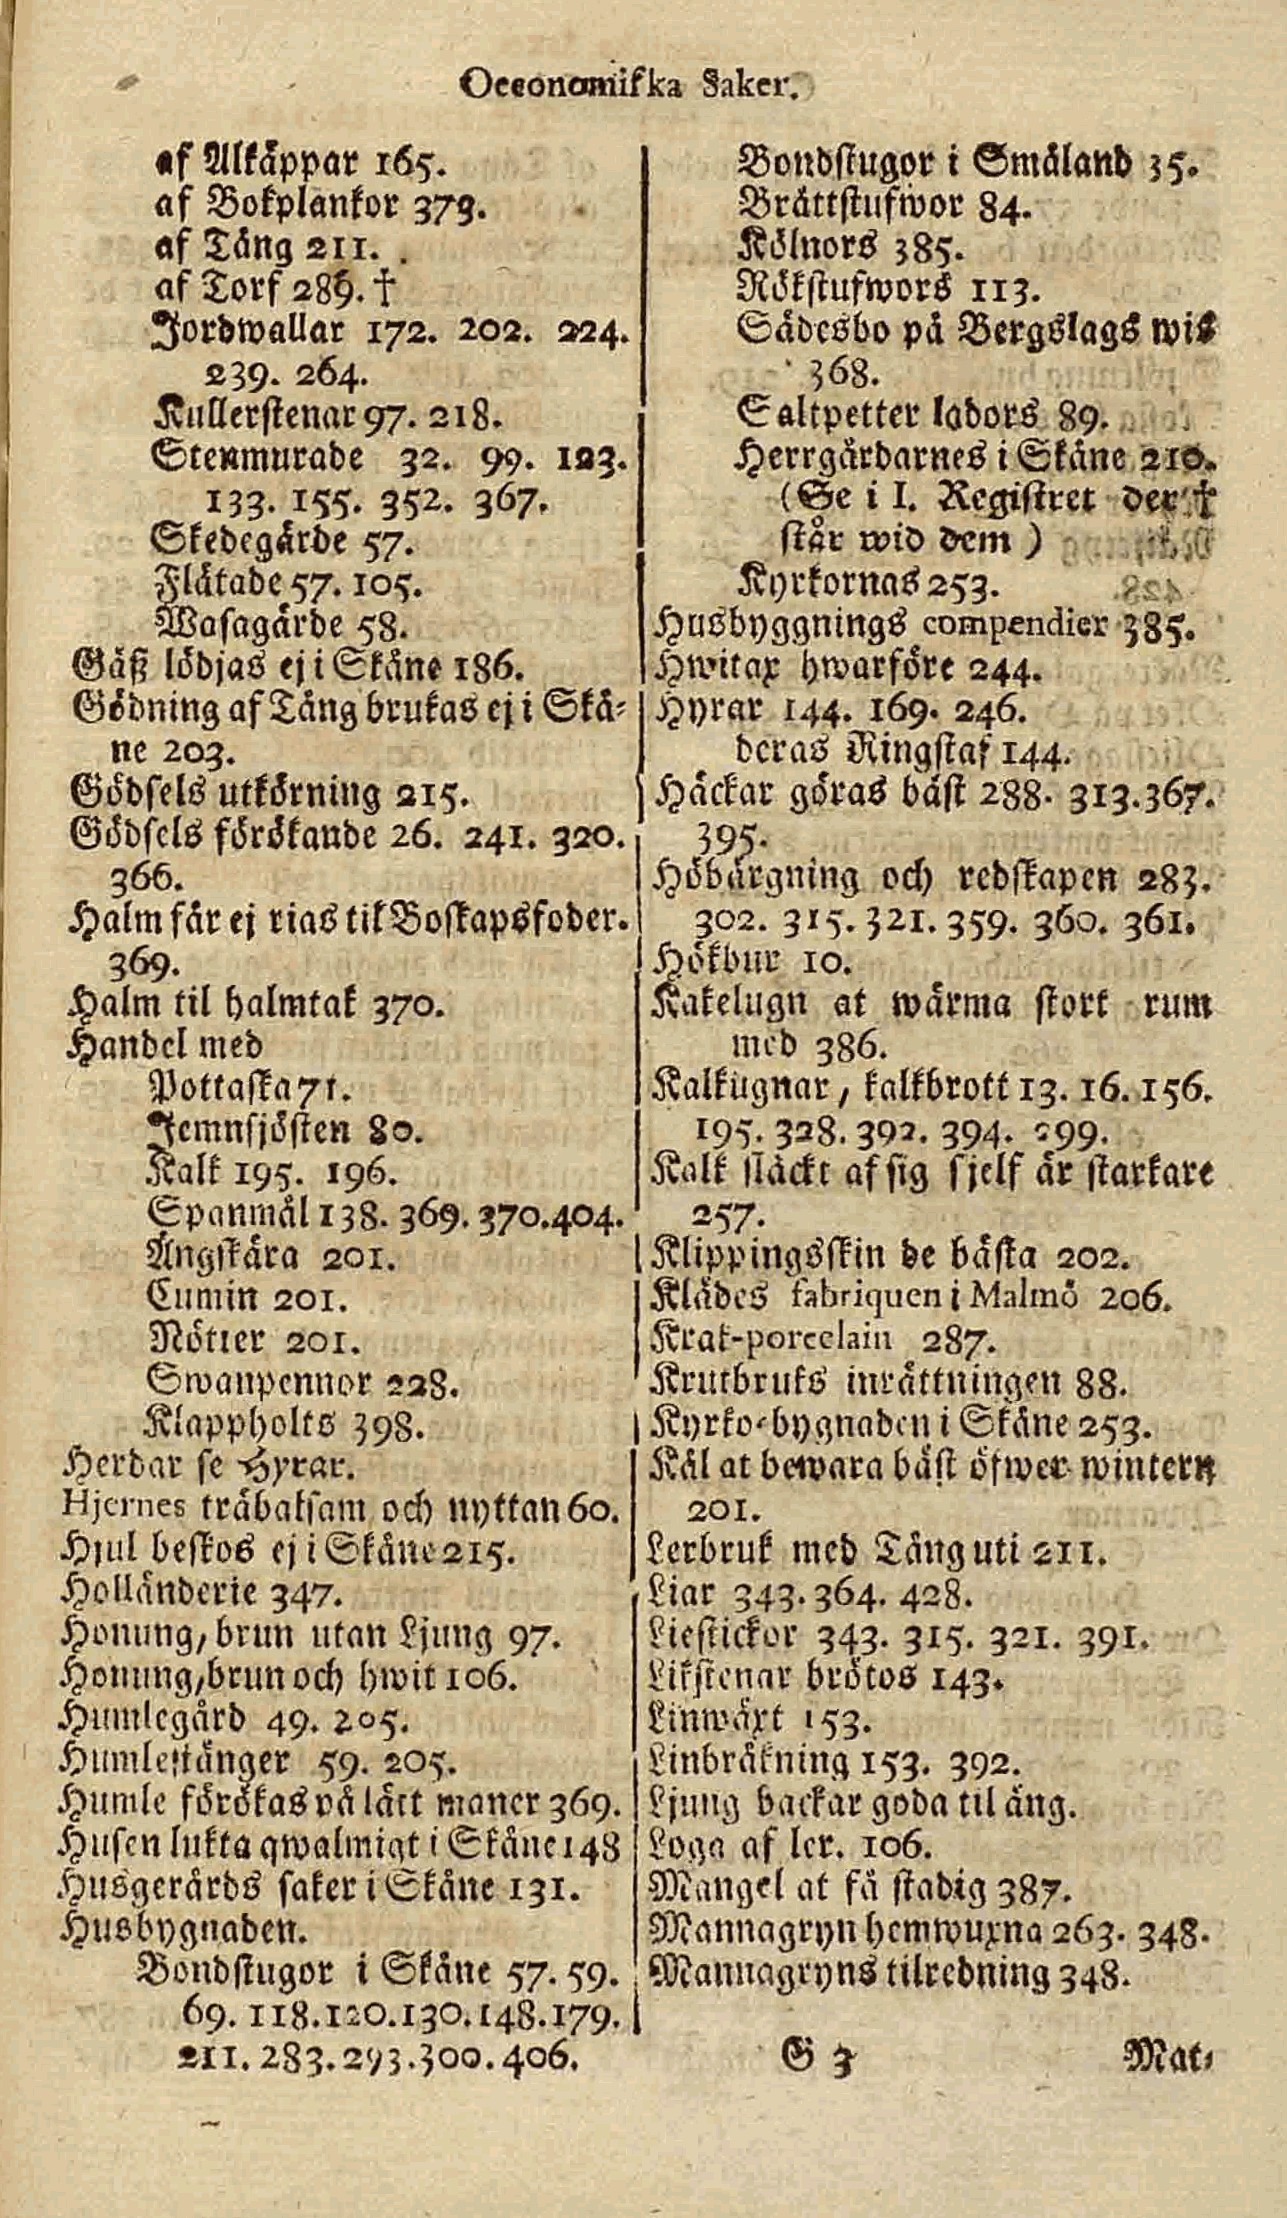 Oeconomiska Saker.
af Alkäppar 165.
af Bokplankor 379.
af Tång 211.
af Torf 289. †
Jordwallar 172. 202. 224.
239. 264.
Kullerstenar 97. 218.
Stenmurade 32. 99. 123.
133. 155. 352. 367.
Skedegärde 57.
Flätade 57. 105.
Wasagärde 58.
Gäß lödjas ej i Skåne 186.
Gödning af Tång brukas ej i Skå-
ne 203.
Gödsels utkörning 215.
Gödsels förökande 26. 241. 320.
366.
Halm får ej rias til Boskapsfoder.
369.
Halm til halmtak 370.
Handel med
Pottaska 71.
Jemnsjösten 80.
Kalk 195. 196.
Spanmål 138. 369. 370. 404.
Ängskära 201.
Cumin 201.
Nötter 201.
Swanpennor 228.
Klappholts 398.
Herdar se Hyrar.
Hjernes träbalsam och nyttan 60.
Hjul beskos ej i Skåne 215.
Holländerie 347.
Honung, brun utan Ljung 97.
Honung, brun och hwit 106.
Humlegård 49. 205.
Humlestänger 59. 205.
Humle förökas på lätt maner 369.
Husen lukta qwalmigt i Skåne 148
Husgerårds saker i Skåne 131.
Husbygnaden.
Bondstugor i Skåne 57. 59.
69. 118. 120. 130. 148. 179.
211. 283. 293. 300. 406.
Bondstugor i Småland 35.
Bråttstufwor 84.
Kölnors 385.
Rökstufwors 113.
Sädesbo på Bergslags wis
368.
Saltpetter ladors 89.
Herrgårdarnes i Skåne 210.
(Se i I. Registret der †
står wid dem )
Kyrkornas 253.
Husbyggnings compendier 385.
Hwitax hwarföre 244.
Hyrar 144. 169. 246.
deras Ringstaf 144.
Häckar göras bäst 288. 313. 367.
395.
Höbärgning och redskapen 283.
302. 315. 321. 359. 360. 361.
Hökbur 10.
Kakelugn at wärma stort rum
med 386.
Kalkugnar, kalkbrott 13. 16. 156.
195. 328. 392. 394. 399.
Kalk släckt af sig sjelf är starkare
257.
Klippingsskin de bästa 202.
Klädes fabriquen i Malmö 206.
Krak-porcelain 287.
Krutbruks inrättningen 88.
Kyrko-bygnaden i Skåne 253.
Kål at bewara bäst öfwer wintern
201.
Lerbruk med Tång uti 211.
Liar 343. 364. 428.
Liestickor 343. 315. 321. 391.
Likstenar brötos 143.
Linwäxt 153.
Linbråkning 153. 392.
Ljung backar goda til äng.
Loga af ler. 106.
Mangel at få stadig 387.
Mannagryn hemwuxna 263. 348.
Mannagryns tilredning 348.
G 3 Mat-